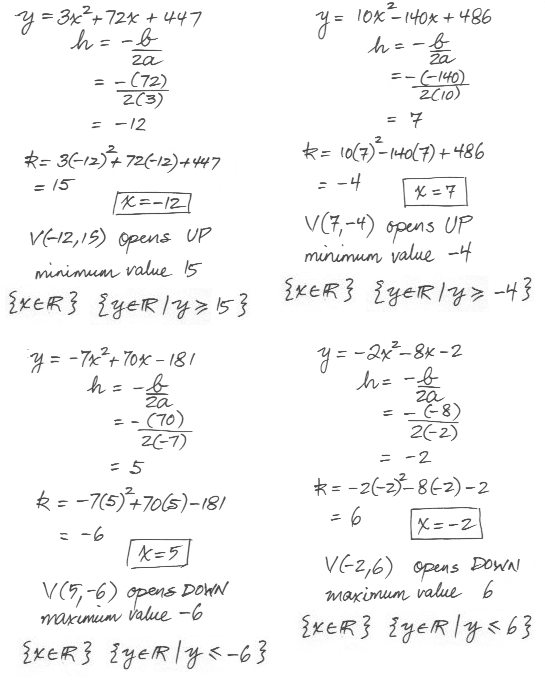 y = 3x² + 72x + 447
h = -b
2a
= -(72)
2(3)
= -12
k = 3(-12)² + 72(-12) + 447
= 15
x = -12
V(-12,15) opens UP
minimum value 15
{x∈ℝ} {y∈ℝ | y ≥ 15}
y = 10x² - 140x + 486
h = -b
2a
= -(-140)
2(10)
= 7
k = 10(7)² - 140(7) + 486
= -4
x = 7
V(7,-4) opens UP
minimum value -4
{x∈ℝ} {y∈ℝ | y ≥ -4}
y = -7x² + 70x - 181
h = -b
2a
= -(70)
2(-7)
= 5
k = -7(5)² + 70(5) - 181
= -6
x = 5
V(5,-6) opens DOWN
maximum value -6
{x∈ℝ} {y∈ℝ | y ≤ -6}
y = -2x² - 8x - 2
h = -b
2a
= -(-8)
2(-2)
= -2
k = -2(-2)² - 8(-2) - 2
= 6
x = -2
V(-2,6) opens DOWN
maximum value 6
{x∈ℝ} {y∈ℝ | y ≤ 6}